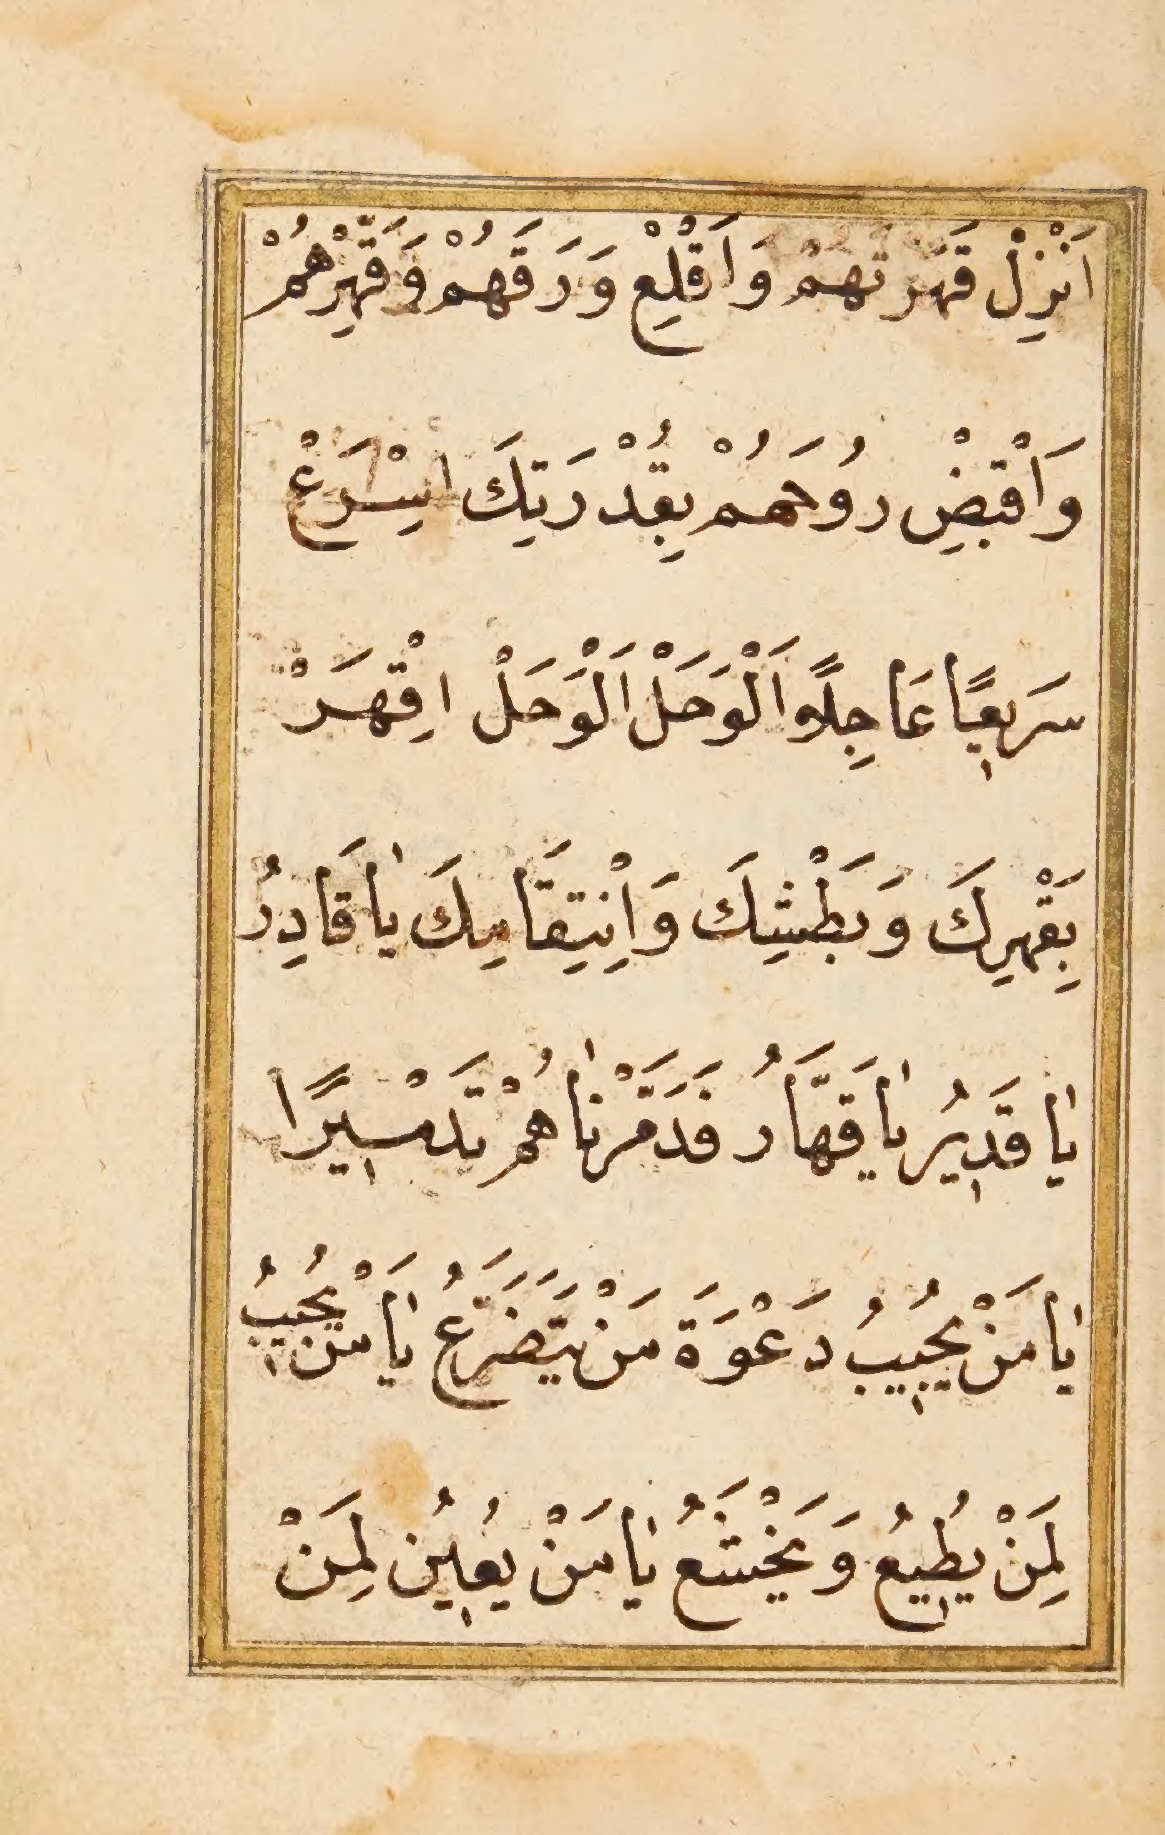 اَنْزِلْ قَهَرَتهُمْ وَاَقْلِعْ وَرَقَهُمْ وَقَهِّرْهُمْ
وَاَقْبِضْ رُوحَهُمْ بِقُدْرَتِكَ اسْرَعْ
سَرٖيعًا عَاجِلًا اَلْوَحَلْ اَلْوَحَلْ اِقْهَرْ
بِقَهْرِكَ وَبَطْشِكَ وَاِنْتِقَامِكَ يٰا قَادِرُ
يٰا قَدٖيرُ يٰا قَهَّارُ فَدَمَّرْنٰاهُمْ تَدْمٖيرًا
يٰا مَنْ يُجٖيبُ دَعْوَةَ مَنْ يَتَضَرَّعُ يٰا مَنْ يُجٖيبُ
لِمَنْ يُطٖيعُ وَيَخْشَعُ يٰا مَنْ يُعٖينُ لِمَنْ